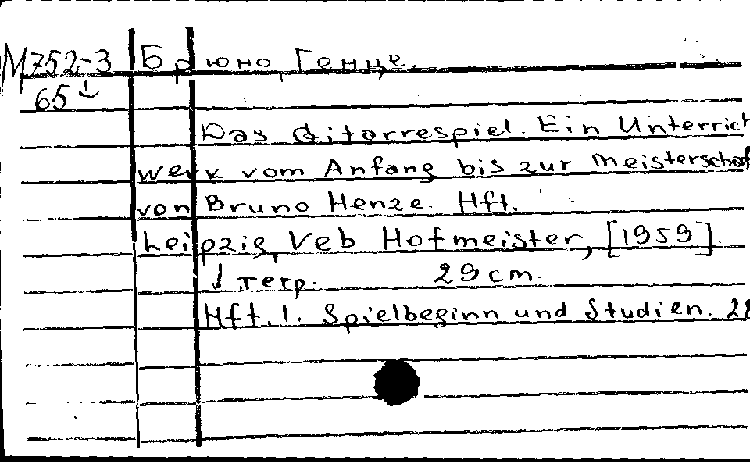 М752-3 Брюно, Генце.
65↓
Das Gitarrespiel. Ein Unterricht
werk vom Anfang bis zur Meisterschaft
von Bruno Henze. Hft.
Leipzig, Veb Hofmeister, [1959]
↓ тетр. 29 cm.
Hft. 1. Spielbeginn und Studien. 22